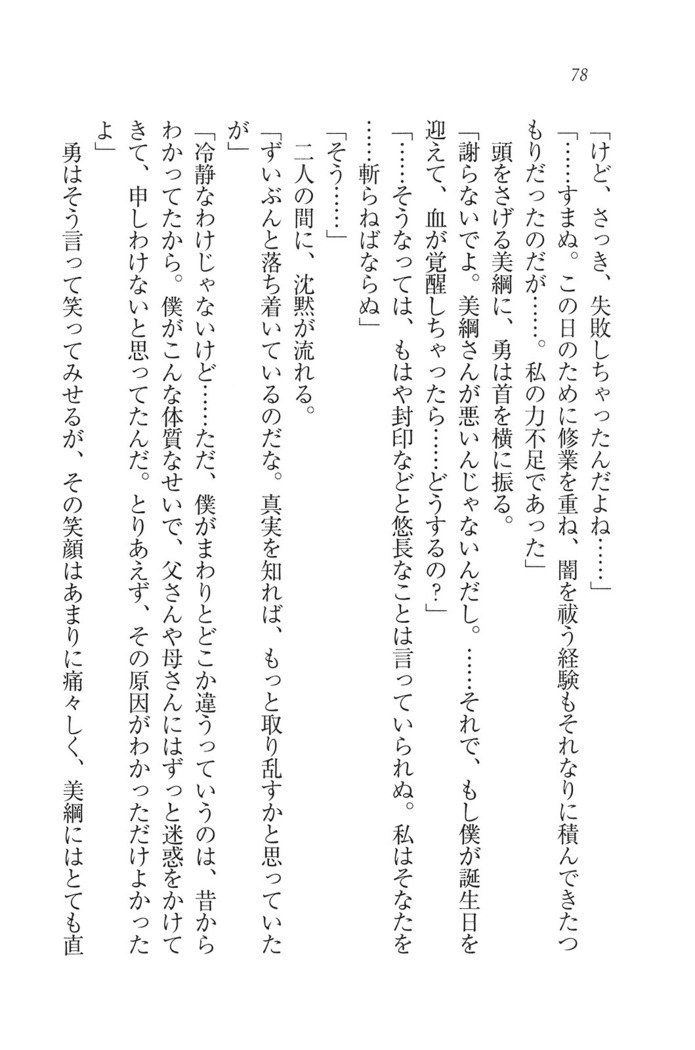 78
「けど、さっき、失敗しちゃったんだよね……」
「……すまぬ。この日のために修業を重ね、闇を祓う経験もそれなりに積んできたつ
もりだったのだが……。私の力不足であった」
頭をさげる美綱に、勇は首を横に振る。
「謝らないでよ。美綱さんが悪いんじゃないんだし。……それで、もし僕が誕生日を
迎えて、血が覚醒しちゃったら……どうするの？」
「……そうなっては、もはや封印などと悠長なことは言っていられぬ。私はそなたを
……斬らねばならぬ」
「そう……」
二人の間に、沈黙が流れる。
「ずいぶんと落ち着いているのだな。真実を知れば、もっと取り乱すかと思っていた
が」
「冷静なわけじゃないけど……ただ、僕がまわりとどこか違うっていうのは、昔から
わかってたから。僕がこんな体質なせいで、父さんや母さんにはずっと迷惑をかけて
きて、申しわけないと思ってたんだ。とりあえず、その原因がわかっただけよかった
よ」
勇はそう言って笑ってみせるが、その笑顔はあまりに痛々しく、美綱にはとても直